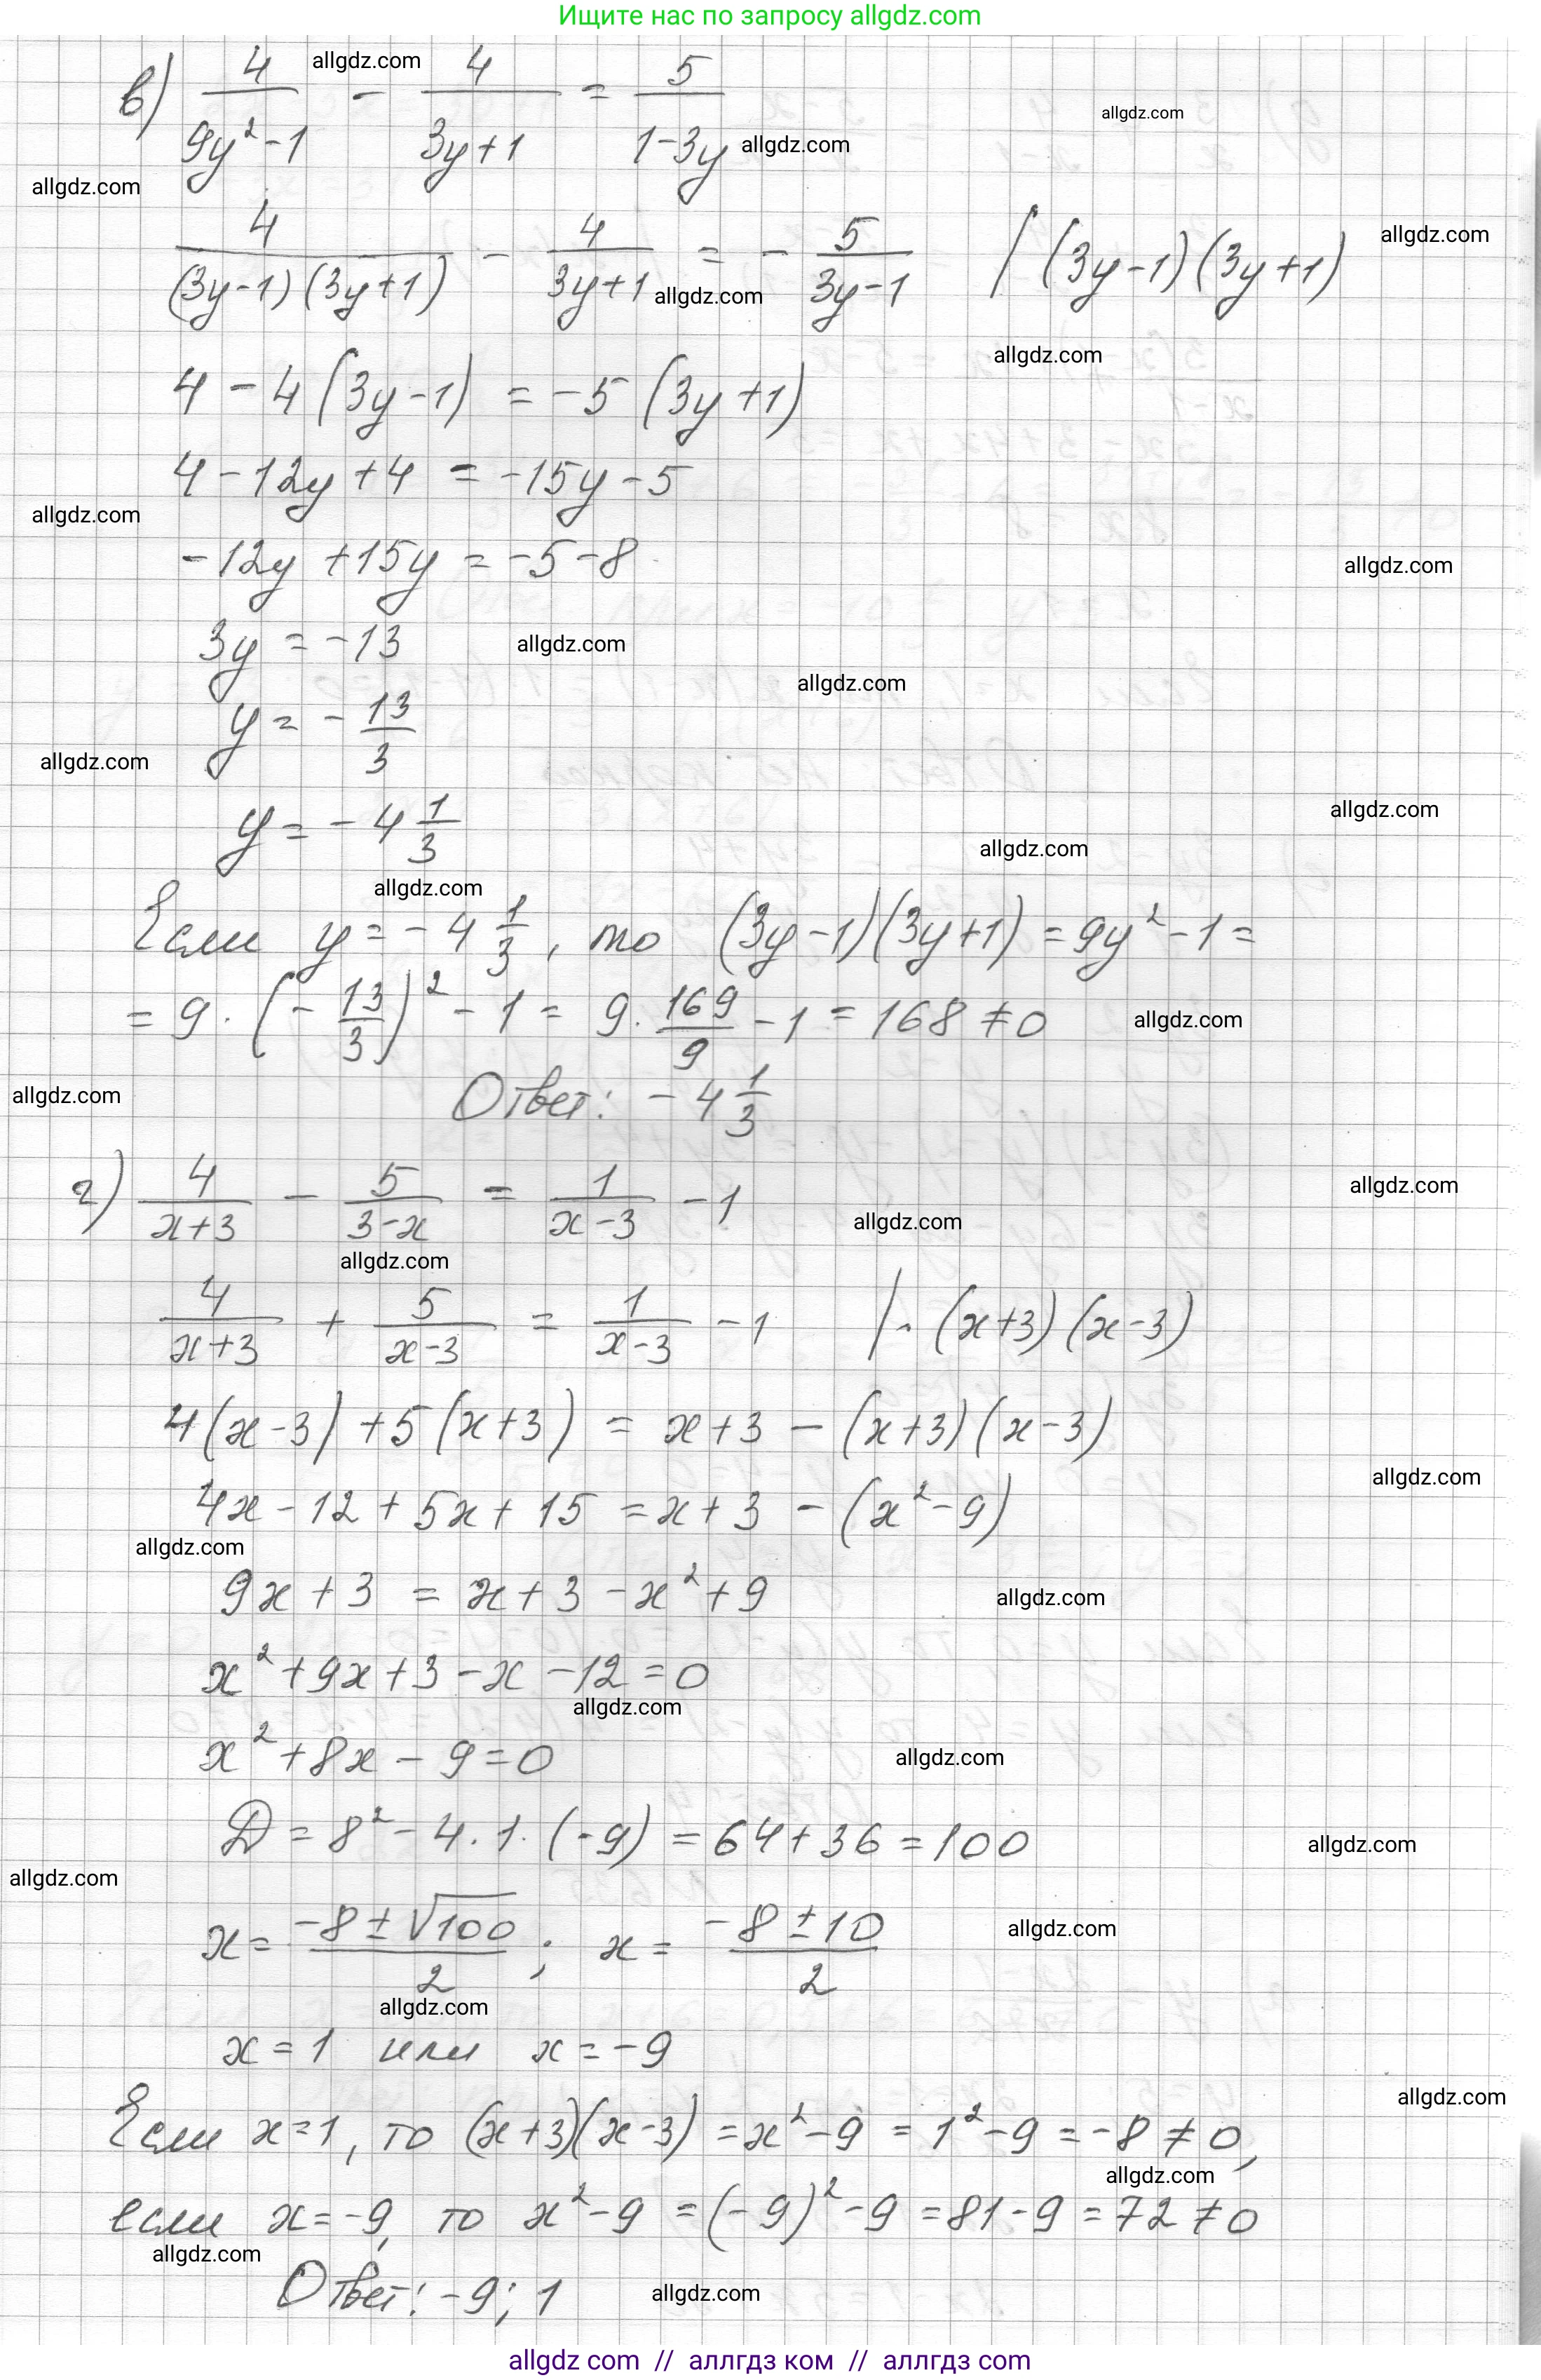 Ищите нас по запросу allgdz.com
в) 4/(9y²-1) - 4/(3y+1) = 5/(1-3y)
4/((3y-1)(3y+1)) - 4/(3y+1) = - 5/(3y-1) | (3y-1)(3y+1)
4 - 4(3y-1) = -5(3y+1)
4 - 12y + 4 = -15y - 5
-12y + 15y = -5 - 8
3y = -13
y = - 13/3
y = - 4 1/3
Если y = - 4 1/3, то (3y-1)(3y+1) = 9y² - 1 =
= 9 · (- 13/3)² - 1 = 9 · 169/9 - 1 = 168 ≠ 0
Ответ: - 4 1/3
г) 4/(x+3) - 5/(3-x) = 1/(x-3) - 1
4/(x+3) + 5/(x-3) = 1/(x-3) - 1 | · (x+3)(x-3)
4(x-3) + 5(x+3) = x + 3 - (x+3)(x-3)
4x - 12 + 5x + 15 = x + 3 - (x² - 9)
9x + 3 = x + 3 - x² + 9
x² + 9x + 3 - x - 12 = 0
x² + 8x - 9 = 0
D = 8² - 4 · 1 · (-9) = 64 + 36 = 100
x = (-8 ± √100)/2 ; x = (-8 ± 10)/2
x = 1 или x = -9
Если x = 1, то (x+3)(x-3) = x² - 9 = 1² - 9 = -8 ≠ 0,
если x = -9, то x² - 9 = (-9)² - 9 = 81 - 9 = 72 ≠ 0
Ответ: -9; 1
allgdz com // аллгдз ком // аллгдз com